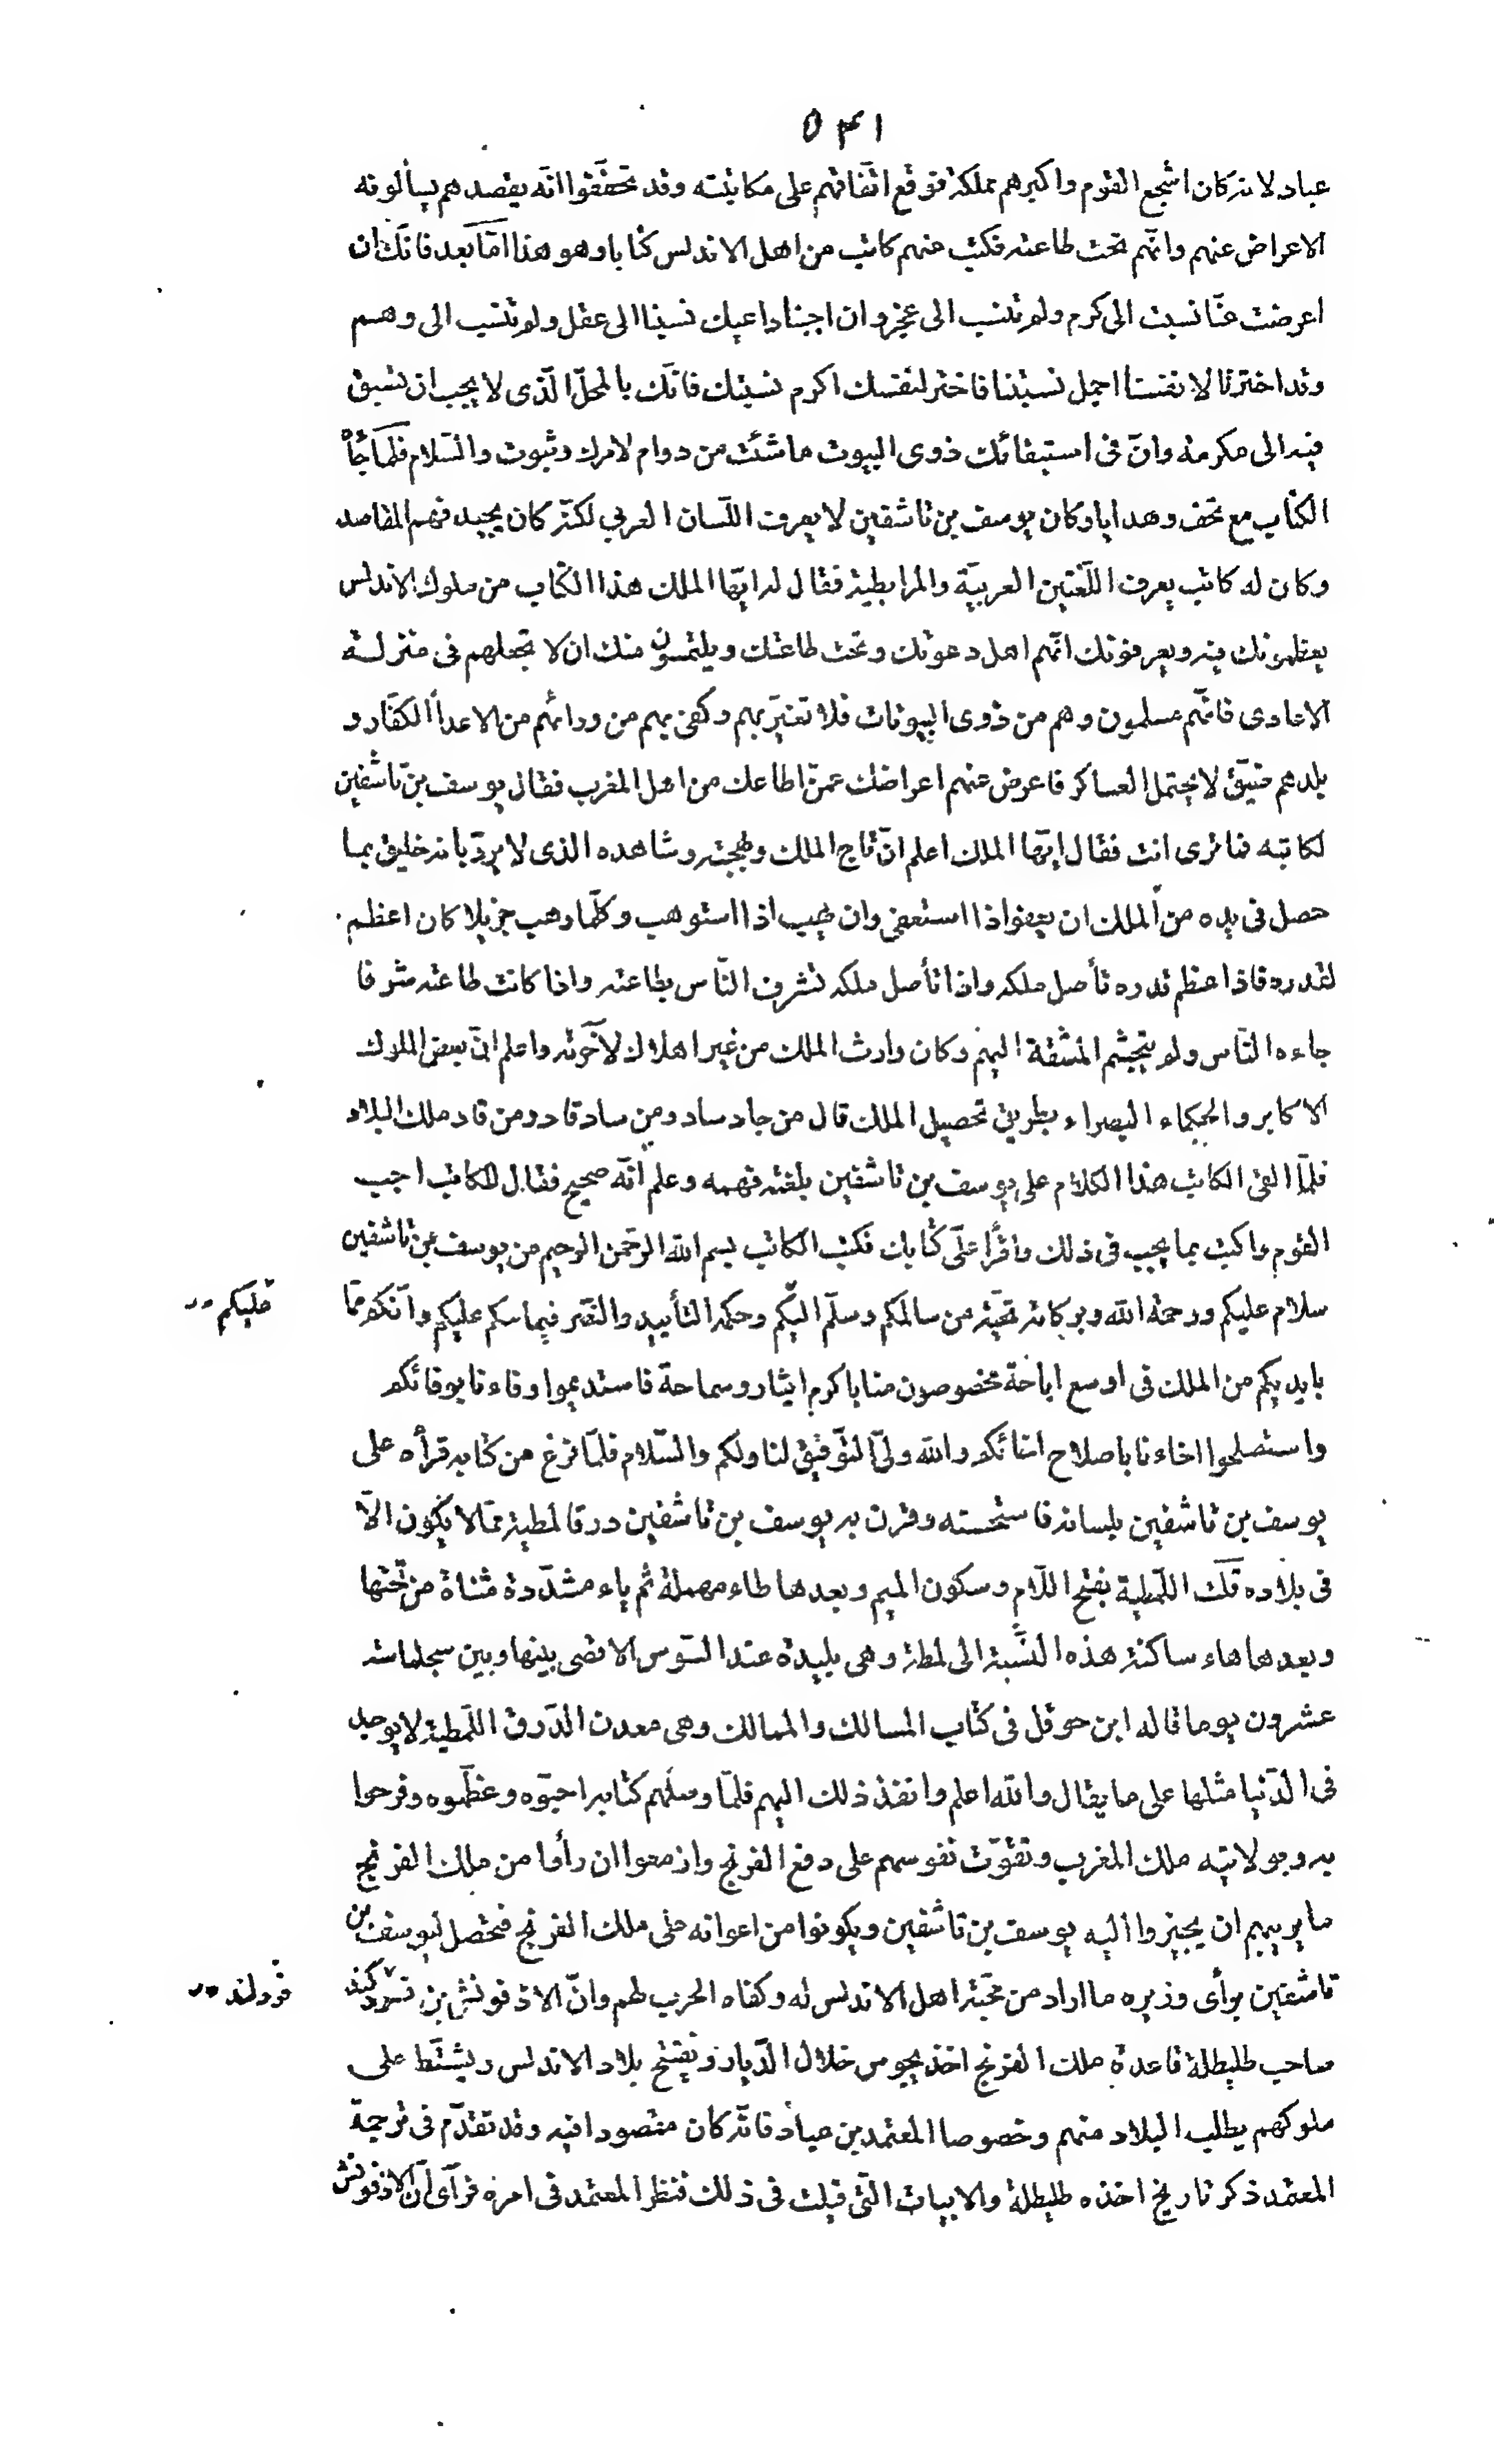 ٥٣١
عباد لانه كان اشجع القوم واكبرهم مملكة فوقع اتفاقهم على مكاتبته وقد تحققوا انه يقصدهم يسألونه
الاعراض عنهم وانهم تحت طاعته فكتب عنهم كاتب من اهل الاندلس كتابا وهو هذا امّا بعد فانّك ان
اعرضت عنّا نسبت الى كرم ولم تنسب الى عجز وان اجبنا داعيك نسبنا الى عقل ولم ننسب الى وهم
وقد اخترنا لانفسنا اجمل نسبتنا فاختر لنفسك اكرم نسبتك فانّك بالمحلّ الّذى لا يجب ان تسبق
فيه الى مكرمة وانّ فى استبقائك ذوى البيوت ما شئت من دوام لامرك وثبوت والسّلام فلمّا جاءه
الكتاب مع تحف وهدايا وكان يوسف بن تاشفين لا يعرف اللّسان العربي لكنّه كان يجيد فهم المقاصد
وكان له كاتب يعرف اللّغتين العربيّة والمرابطيّة فقال له ايّها الملك هذا الكتاب من ملوك الاندلس
يعظمونك فيه ويعرفونك انّهم اهل دعوتك وتحت طاعتك ويلتمسون منك ان لا تجعلهم فى منزلة
الاعادى فانّهم مسلمون وهم من ذوى البيوتات فلا تغيّر بهم وكفى بهم من ورائهم من الاعدأ الكفّار و
بلدهم ضيّق لا يحتمل العساكر فاعرض عنهم اعراضك عمّن اطاعك من اهل المغرب فقال يوسف بن تاشفين
لكاتبه فما ترى انت فقال ايّها الملك اعلم انّ تاج الملك وبهجته وشاهده الذى لا يردّ بانه خليق بما
حصل فى يده من الملك ان يعفو اذا استعفى وان يهب اذا استوهب وكلّما وهب جزيلا كان اعظم
لقدره فاذا عظم قدره تأصل ملكه واذا تأصل ملكه تشرف النّاس بطاعته واذا كانت طاعته شرفا
جاءه النّاس ولم يتجشم المشقة اليهم وكان وارث الملك من غير اهلاك لآخرته واعلم انّ بعض الملوك
الاكابر والحكماء البصراء بطريق تحصيل الملك قال من جاد ساد ومن ساد قاد ومن قاد ملك البلاد
فلمّا القى الكاتب هذا الكلام على يوسف بن تاشفين بلغته فهمه وعلم انّه صحيح فقال للكاتب اجب
القوم واكتب بما يجب فى ذلك واقرأ علىّ كتابك فكتب الكاتب بسم الله الرحمن الرحيم من يوسف بن تاشفين
سلام عليكم ورحمة الله وبركاته تحيّة من سالمكم وسلّم اليكم وحكمه التأييد والنّصر فيما حكم عليكم وانّكم ممّا
عليكم
بايديكم من الملك فى اوسع اباحة مخصوصون منا باكرم ايثار وسماحة فاستديموا وفاءنا بوفائكم
واستصلحوا اخاءنا باصلاح اخائكم والله ولىّ التّوفيق لنا ولكم والسّلام فلمّا فرغ من كتابه قرأه على
يوسف بن تاشفين بلسانه فاستحسنه وقرن به يوسف بن تاشفين درقا لمطية ممّا لا يكون الّا
فى بلاده قلت اللّمطية بفتح اللّام وسكون الميم وبعدها طاء مهملة ثم ياء مشدّدة مثناة من تحتها
وبعدها هاء ساكنة هذه النّسبة الى لمطة وهى بليدة عند السّوس الاقصى بينها وبين سجلماسة
عشرون يوما قاله ابن حوقل فى كتاب المسالك والممالك وهى معدن الدّرق اللّمطية لا يوجد
فى الدّنيا مثلها على ما يقال والله اعلم وانفذ ذلك اليهم فلمّا وصلهم كتابه احبّوه وعظّموه وفرحوا
به وبولايته ملك المغرب وتقوّت نفوسهم على دفع الفرنج وازمعوا ان رأوا من ملك الفرنج
ما يريبهم ان يجيزوا اليه يوسف بن تاشفين ويكونوا من اعوانه على ملك الفرنج فتحصل ليوسف بن
تاشفين برأى وزيره ما اراد من محبّة اهل الاندلس له وكفاه الحرب لهم وانّ الاذفونش بن
فردلند
صاحب طليطلة قاعدة ملك الفرنج اخذ يجوس خلال الدّيار ويفتتح بلاد الاندلس ويشتّط على
ملوكهم يطلب البلاد منهم وخصوصا المعتمد بن عباد فانّه كان مقصودا فيه وقد تقدّم فى ترجمة
المعتمد ذكر تاريخ اخذه طليطلة والابيات الّتى قيلت فى ذلك فنظر المعتمد فى امره فرأى انّ الاذفونش